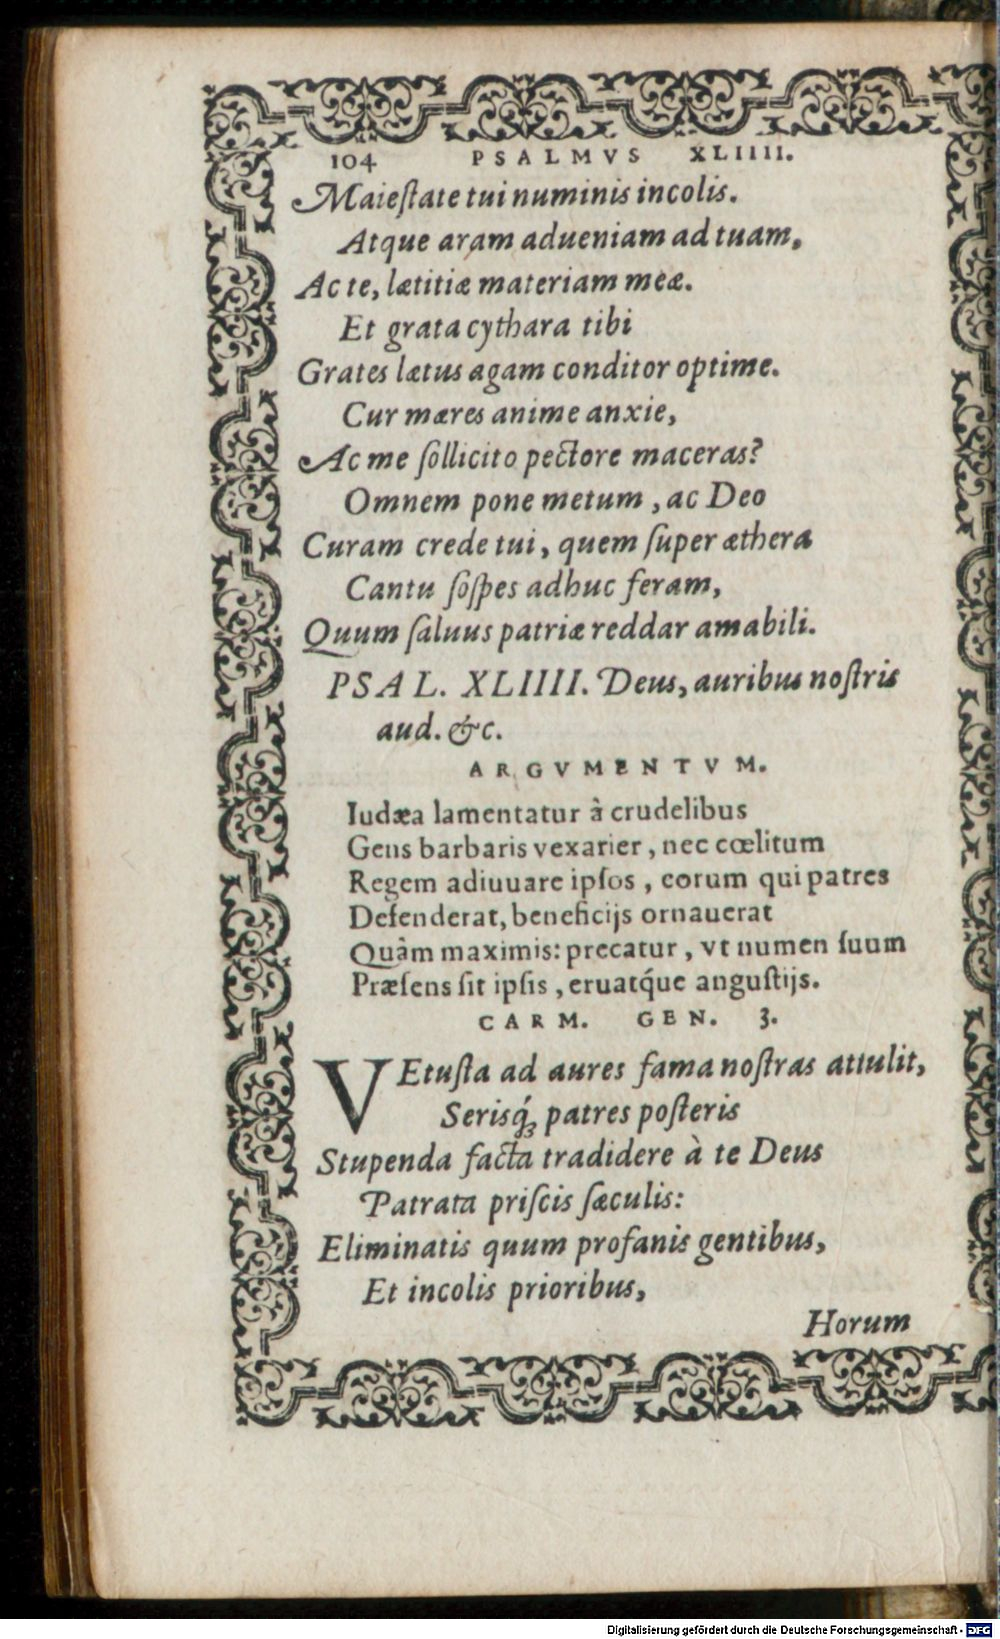 104 PSALMVS XLIIII.
Maieſtate tui numinis incolis.
Atque aram adueniam ad tuam,
Ac te, lætitiæ materiam meæ.
Et grata cythara tibi
Grates lætus agam conditor optime.
Cur mæres anime anxie,
Ac me ſollicito pectore maceras?
Omnem pone metum, ac Deo
Curam crede tui, quem ſuper æthera
Cantu ſoſpes adhuc feram,
Quum ſaluus patriæ reddar amabili.
PSAL. XLIIII. Deus, auribus noſtris
aud. &c.
ARGVMENTVM.
Iudæa lamentatur à crudelibus
Gens barbaris vexarier, nec cœlitum
Regem adiuuare ipſos, eorum qui patres
Defenderat, beneficijs ornauerat
Quàm maximis: precatur, vt numen ſuum
Præſens ſit ipſis, eruatq́ue anguſtijs.
CARM. GEN. 3.
VEtuſta ad aures fama noſtras attulit,
Serisq́ꝫ patres poſteris
Stupenda facta tradidere à te Deus
Patrata priſcis ſæculis:
Eliminatis quum profanis gentibus,
Et incolis prioribus,
Horum
Digitalisierung gefördert durch die Deutsche Forschungsgemeinschaft - DFG